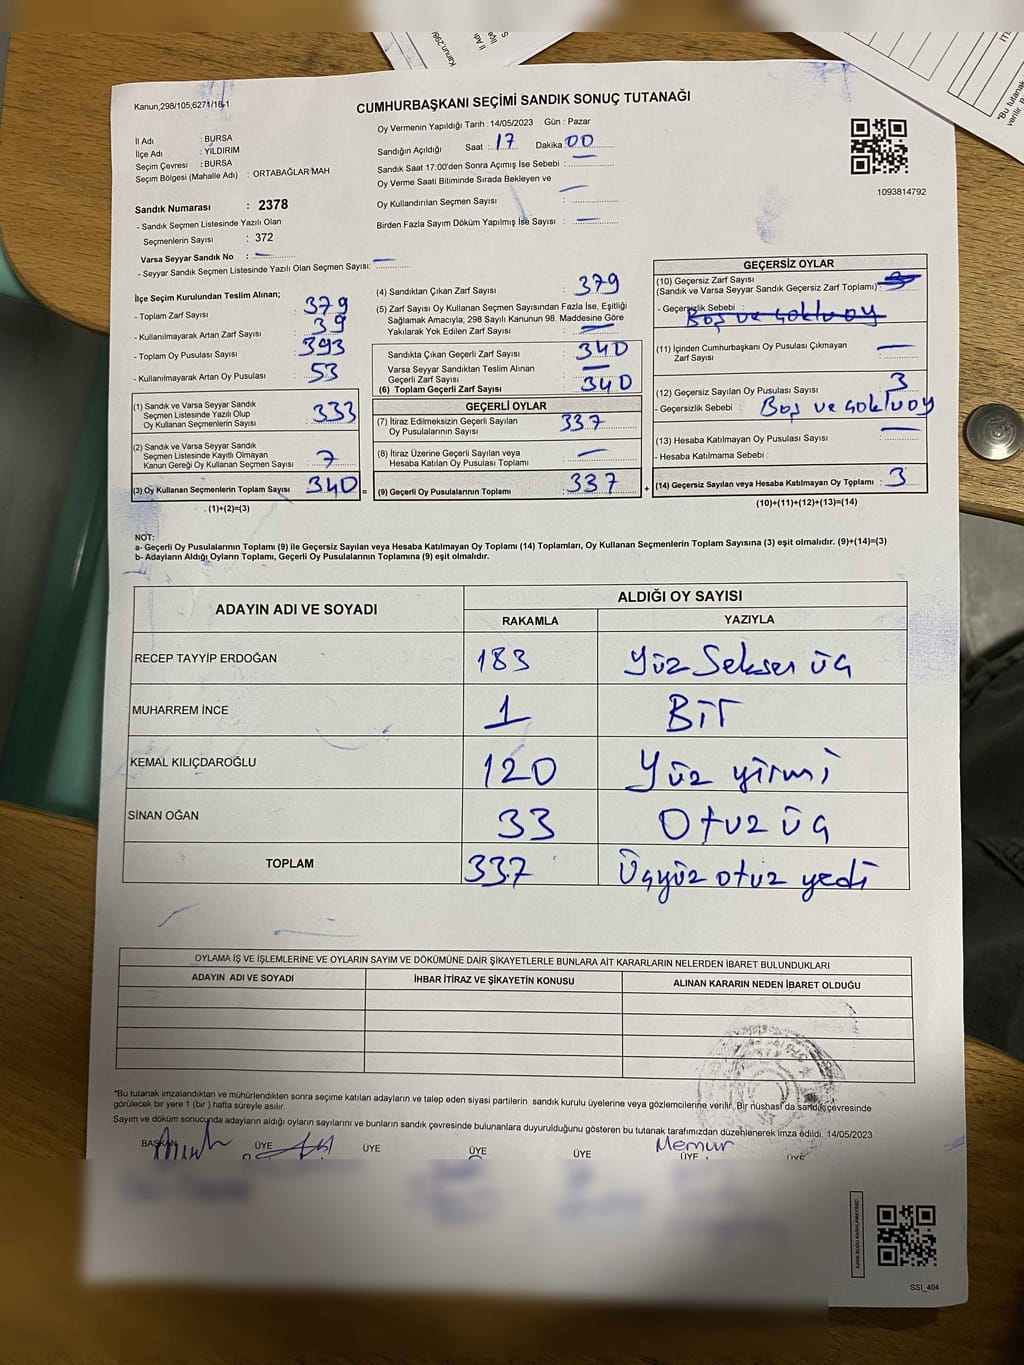 Kanun,298/105,6271/18,1
CUMHURBAŞKANI SEÇİMİ SANDIK SONUÇ TUTANAĞI
İl Adı : BURSA
İlçe Adı : YILDIRIM
Seçim Çevresi : BURSA
Seçim Bölgesi (Mahalle Adı) : ORTABAĞLAR MAH
Sandık Numarası : 2378
- Sandık Seçmen Listesinde Yazılı Olan
Seçmenlerin Sayısı : 372
Varsa Seyyar Sandık No : —
- Seyyar Sandık Seçmen Listesinde Yazılı Olan Seçmen Sayısı: —
Oy Vermenin Yapıldığı Tarih : 14/05/2023 Gün : Pazar
Sandığın Açıldığı Saat : 17 Dakika 00
Sandık Saat 17:00'den Sonra Açımış İse Sebebi : —
Oy Verme Saati Bitiminde Sırada Bekleyen ve
Oy Kullandırılan Seçmen Sayısı : —
Birden Fazla Sayım Döküm Yapılmış İse Sayısı : —
1093814792
İlçe Seçim Kurulundan Teslim Alınan;
- Toplam Zarf Sayısı : 379
- Kullanılmayarak Artan Zarf Sayısı : 39
- Toplam Oy Pusulası Sayısı : 393
- Kullanılmayarak Artan Oy Pusulası : 53
(1) Sandık ve Varsa Seyyar Sandık
Seçmen Listesinde Yazılı Olup
Oy Kullanan Seçmenlerin Sayısı : 333
(2) Sandık ve Varsa Seyyar Sandık
Seçmen Listesinde Kayıtlı Olmayan
Kanun Gereği Oy Kullanan Seçmen Sayısı : 7
(3) Oy Kullanan Seçmenlerin Toplam Sayısı : 340 =
(1)+(2)=(3)
(4) Sandıktan Çıkan Zarf Sayısı : 379
(5) Zarf Sayısı Oy Kullanan Seçmen Sayısından Fazla İse, Eşitliği
Sağlamak Amacıyla; 298 Sayılı Kanunun 98. Maddesine Göre
Yakılarak Yok Edilen Zarf Sayısı : —
Sandıkta Çıkan Geçerli Zarf Sayısı : 340
Varsa Seyyar Sandıktan Teslim Alınan
Geçerli Zarf Sayısı : —
(6) Toplam Geçerli Zarf Sayısı : 340
GEÇERLİ OYLAR
(7) İtiraz Edilmeksizin Geçerli Sayılan
Oy Pusulalarının Sayısı : 337
(8) İtiraz Üzerine Geçerli Sayılan veya
Hesaba Katılan Oy Pusulası Toplamı : —
(9) Geçerli Oy Pusulalarının Toplamı : 337 +
GEÇERSİZ OYLAR
(10) Geçersiz Zarf Sayısı
(Sandık ve Varsa Seyyar Sandık Geçersiz Zarf Toplamı) : 3
- Geçersizlik Sebebi : Boş ve çoklu oy
(11) İçinden Cumhurbaşkanı Oy Pusulası Çıkmayan
Zarf Sayısı : —
(12) Geçersiz Sayılan Oy Pusulası Sayısı : 3
- Geçersizlik Sebebi : Boş ve çoklu oy
(13) Hesaba Katılmayan Oy Pusulası Sayısı : —
- Hesaba Katılmama Sebebi :
(14) Geçersiz Sayılan veya Hesaba Katılmayan Oy Toplamı : 3
(10)+(11)+(12)+(13)=(14)
NOT:
a- Geçerli Oy Pusulalarının Toplamı (9) ile Geçersiz Sayılan veya Hesaba Katılmayan Oy Toplamı (14) Toplamları, Oy Kullanan Seçmenlerin Toplam Sayısına (3) eşit olmalıdır. (9)+(14)=(3)
b- Adayların Aldığı Oyların Toplamı, Geçerli Oy Pusulalarının Toplamına (9) eşit olmalıdır.
ADAYIN ADI VE SOYADI
ALDIĞI OY SAYISI
RAKAMLA YAZIYLA
RECEP TAYYİP ERDOĞAN 183 Yüz Seksen üç
MUHARREM İNCE 1 Bir
KEMAL KILIÇDAROĞLU 120 Yüz yirmi
SİNAN OĞAN 33 Otuz üç
TOPLAM 337 Üçyüz otuz yedi
OYLAMA İŞ VE İŞLEMLERİNE VE OYLARIN SAYIM VE DÖKÜMÜNE DAİR ŞİKAYETLERLE BUNLARA AİT KARARLARIN NELERDEN İBARET BULUNDUKLARI
ADAYIN ADI VE SOYADI İHBAR İTİRAZ VE ŞİKAYETİN KONUSU ALINAN KARARIN NEDEN İBARET OLDUĞU
*Bu tutanak imzalandıktan ve mühürlendikten sonra seçime katılan adayların ve talep eden siyasi partilerin sandık kurulu üyelerine veya gözlemcilerine verilir. Bir nüshası da sandık çevresinde
görülecek bir yere 1 (bir) hafta süreyle asılır.
Sayım ve döküm sonucunda adayların aldığı oyların sayılarını ve bunların sandık çevresinde bulunanlara duyurulduğunu gösteren bu tutanak tarafımızdan düzenlenerek imza edildi. 14/05/2023
BAŞKAN ÜYE ÜYE ÜYE ÜYE Memur ÜYE ÜYE
SSI_404